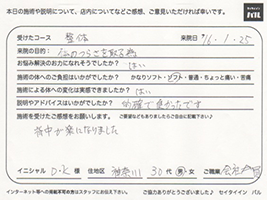 本日の施術や説明について、店内についてなどご感想、ご意見いただければ幸いです。
受けたコース 整体 来院日 '16.1.25
来院の目的: 体のつらさを取る為
お悩み解決のお力になれそうでしたか? はい
施術の体へのご負担はいかがでしたか? かなりソフト・ソフト・普通・ちょっと痛い・苦痛
施術による体への変化は実感できましたか? はい
説明やアドバイスはいかがでしたか? 的確で良かったです
施術を受けたご感想をお願いします。
背中が楽になりました
イニシャル D・K 様 住地区 神奈川 30代 男・女 ご職業 会社員
インターネット等への掲載不可の方はスタッフにお伝え下さい。 ご協力ありがとうございました セイタイイン バル